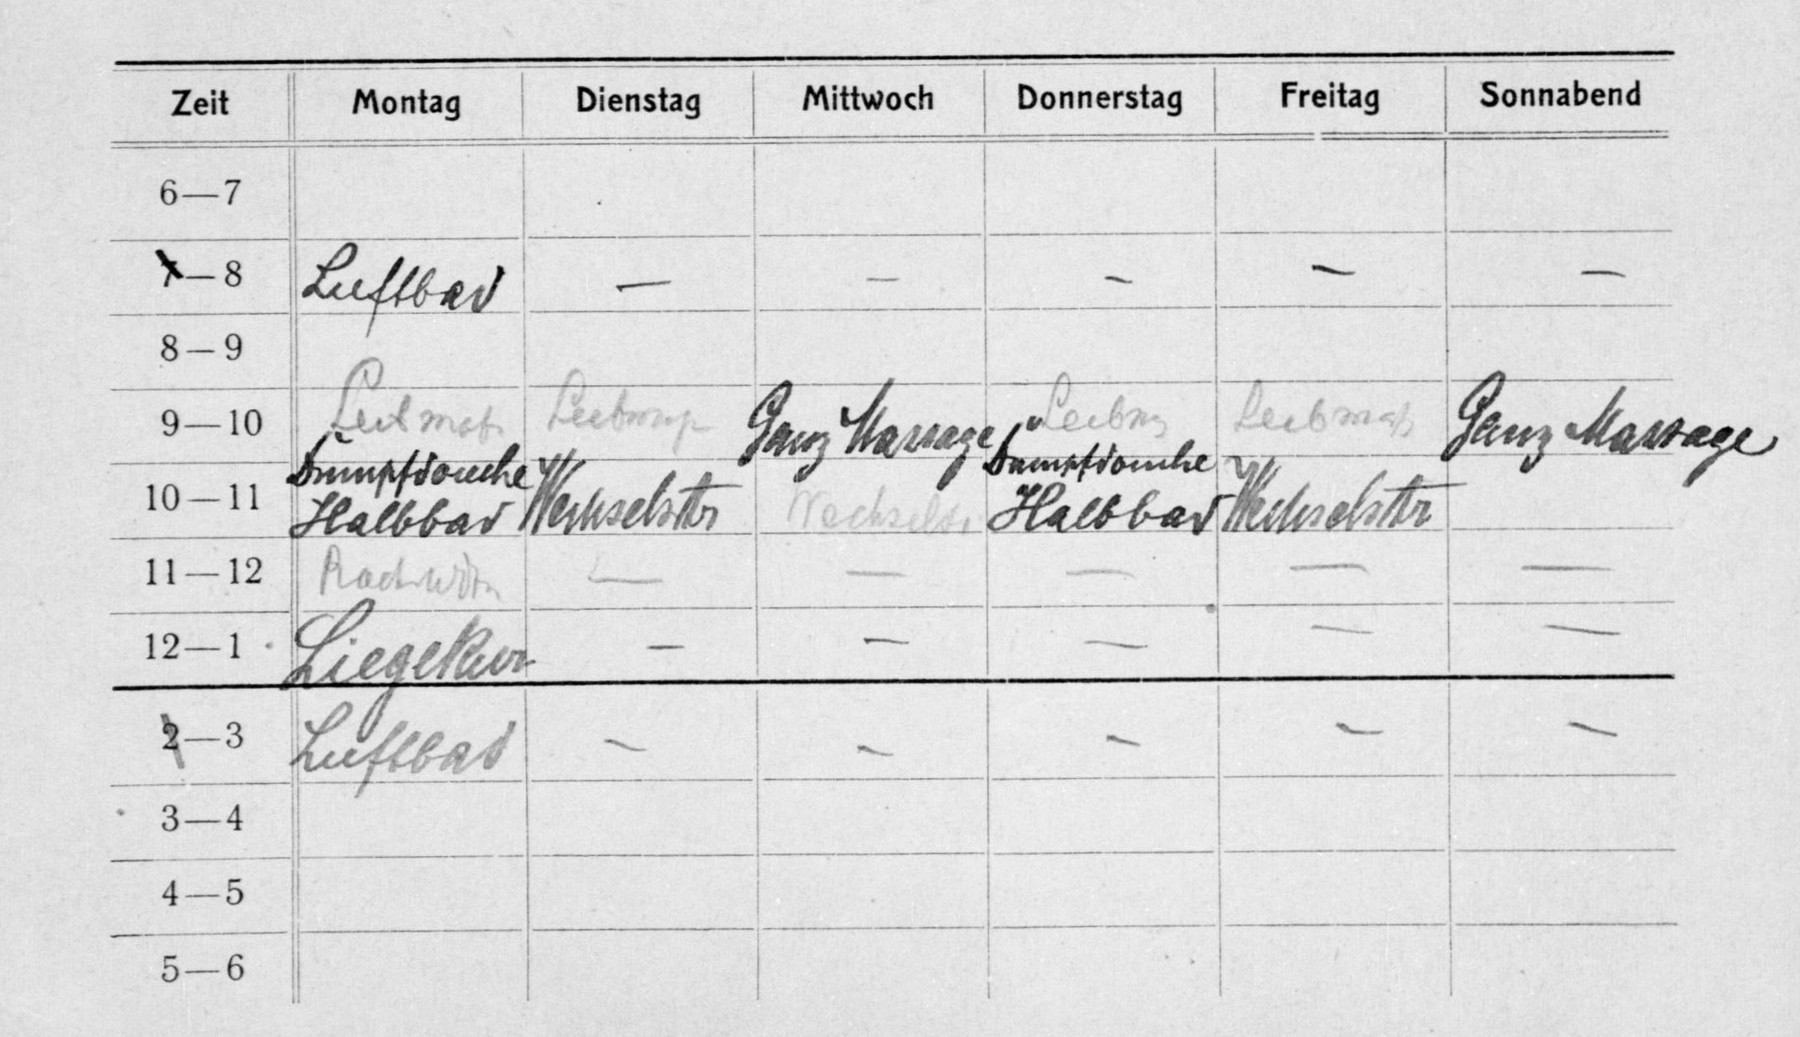 Zeit Montag Dienstag Mittwoch Donnerstag Freitag Sonnabend
6—7
7—8 Luftbad — — — — —
8—9
9—10 Ganz Massage Leibm Leibmaß Ganz Massage
Dampfdouche Dampfdouche
10—11 Halbbad Wechselstr Wechselstr Halbbad Wechselstr
11—12 — — — — —
12—1 Liegekur — — — — —
2—3 Luftbad — — — — —
3—4
4—5
5—6